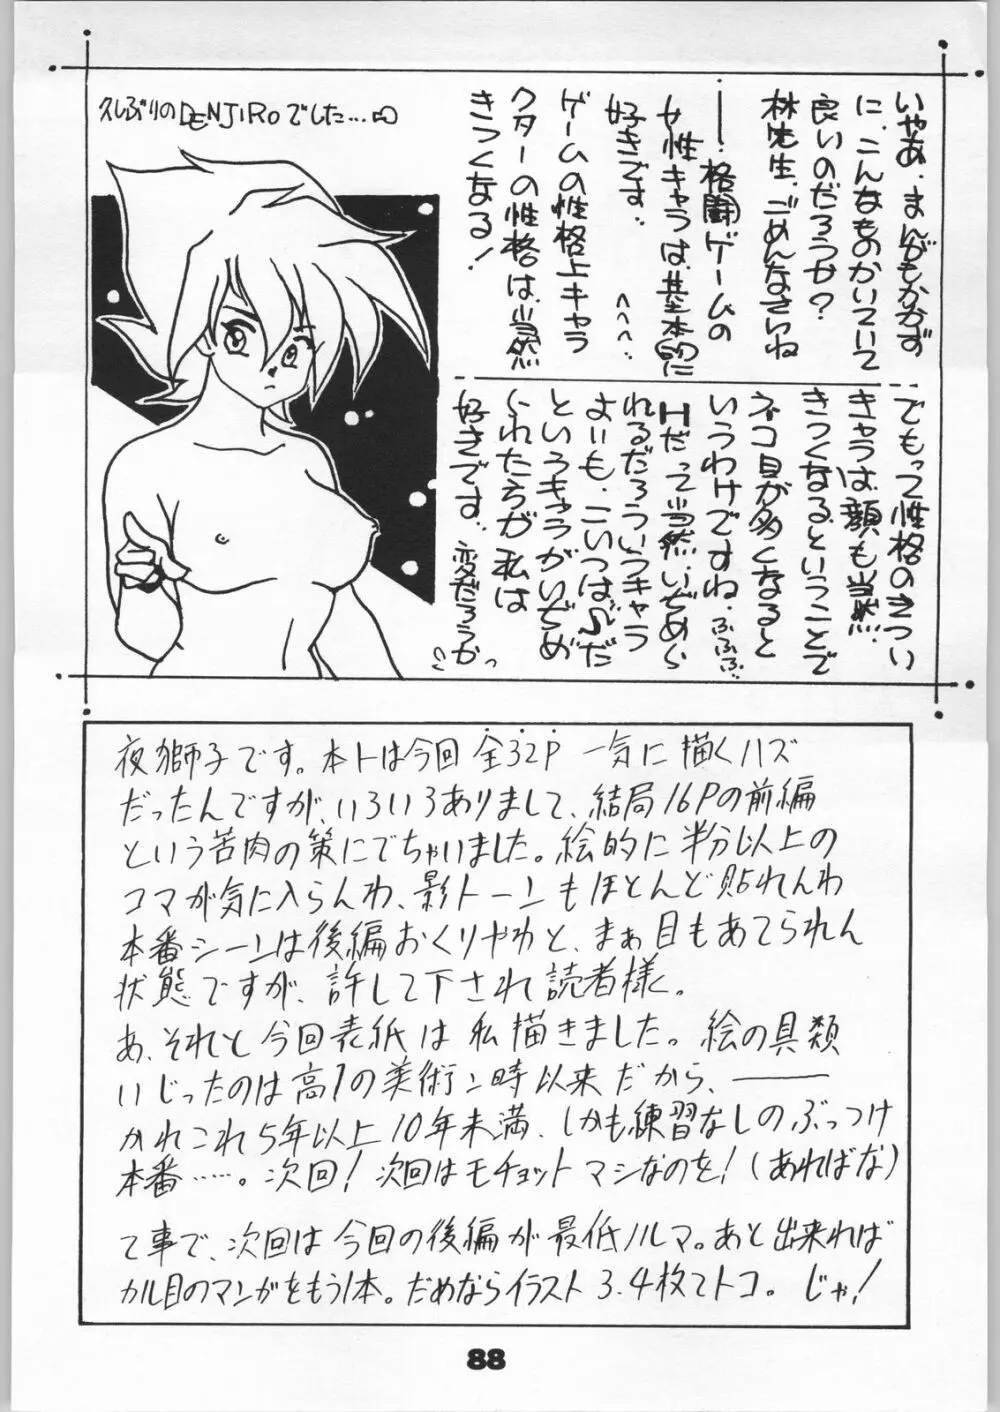 いやあ、まんがもかかず
に、こんなものかいていて
良いのだろうか?
林先生、ごめんなさいね
―・格闘ゲームの
女性キャラは、基本的に
好きです。へへへ…
ゲームの性格上キャラ
クターの性格は、当然
きつくなる!
でもって性格のきつい
キャラは、顔も当然
きつくなるということで
ネコ目が多くなると
いうわけですね、ふふふ…
Hだって当然、いぢめら
れるだろういうキャラ
よいも、こいつは♪だ
というキャラがいぢめ
られたちが私は
好きです。変だろうか
久しぶりのDENJIROでした…
夜獅子です。本トは今回 全32P 一気に描くハズ
だったんですが、いろいろありまして、結局16Pの前編
という苦肉の策にでちゃいました。絵的に半分以上の
コマが気に入らんわ、影トーンもほとんど貼れんわ
本番シーンは後編おくりやわと、まぁ目もあてられん
状態ですが、許して下され読者様。
あ、それと今回表紙は私描きました。絵の具類
いじったのは高1の美術ン時以来だから、―――
かれこれ5年以上10年未満、しかも練習なしのぶっつけ
本番……。次回!次回はモチョットマシなのを!(あればな)
て事で、次回は今回の後編が最低ノルマ。あと出来れば
カル目のマンガをもう1本。だめならイラスト3、4枚てトコ。じゃ!
88